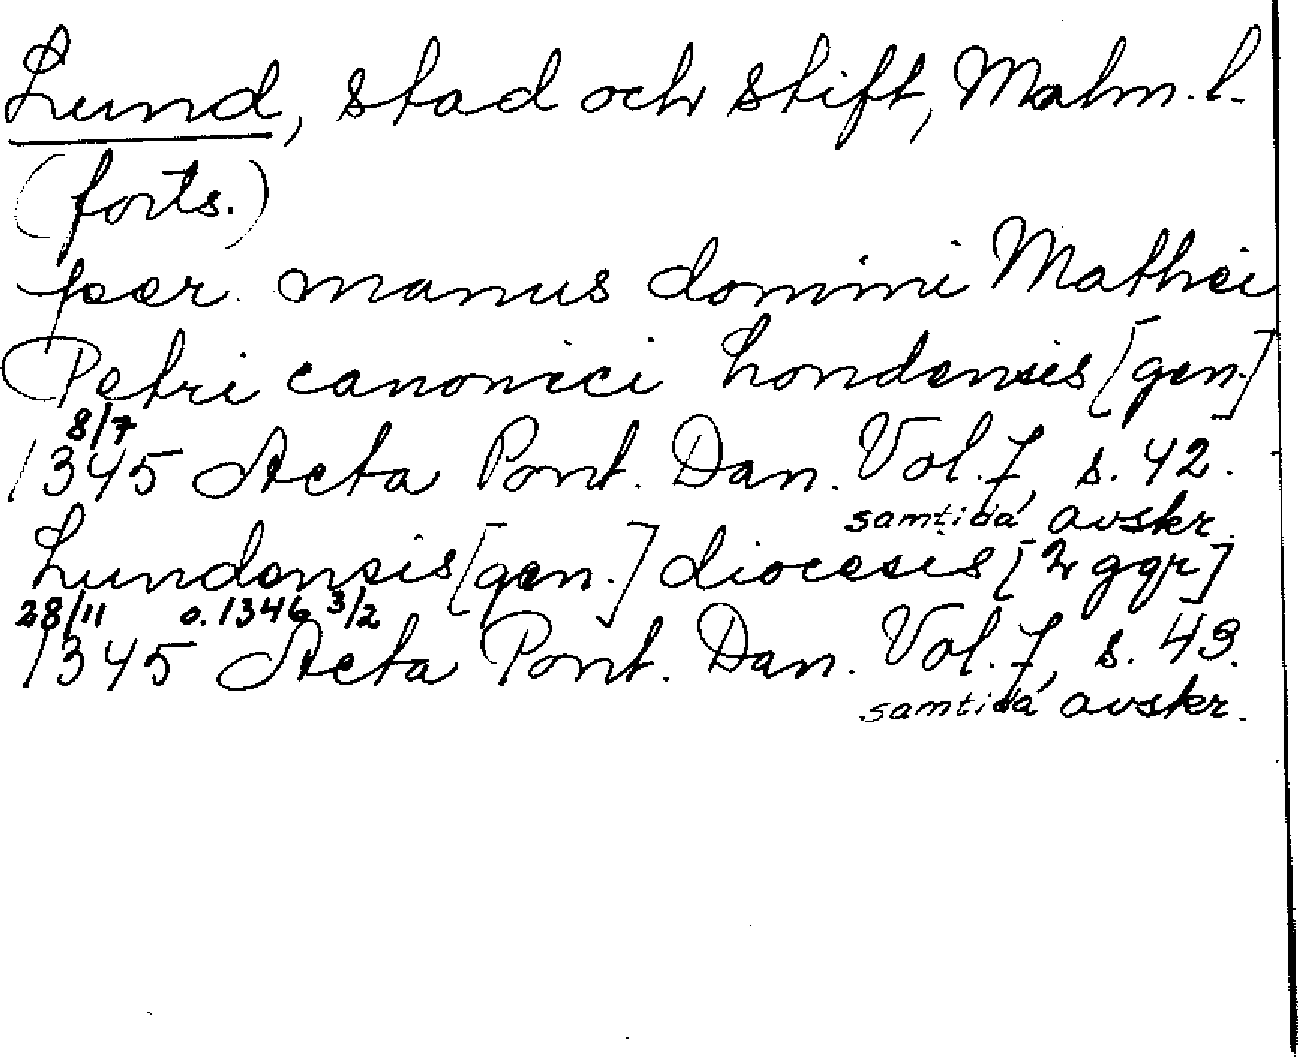 Lund, stad och stift, Malm. l.
(forts.)
per manus domini Mathei
Petri canonici Londensis [gen.]
8/7
1345 Acta Pont. Dan. Vol. 7, s. 42.
samtida avskr.
Lundensis [gen.] diocesis [2 ggr]
28/11 o. 1346 3/2
1345 Acta Pont. Dan. Vol. 7, s. 49.
samtida avskr.